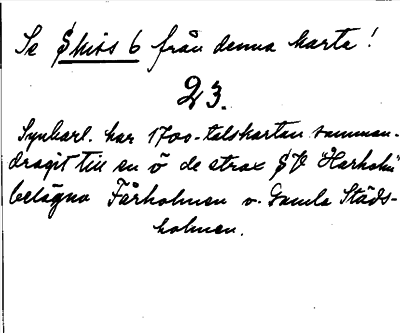 Se Skiss 6 från denna karta!
23.
Synbarl. har 1700-talskartan samman-
dragit till en ö de strax SV
belägna Fårholmen v. Gamla Städs-
holmen.